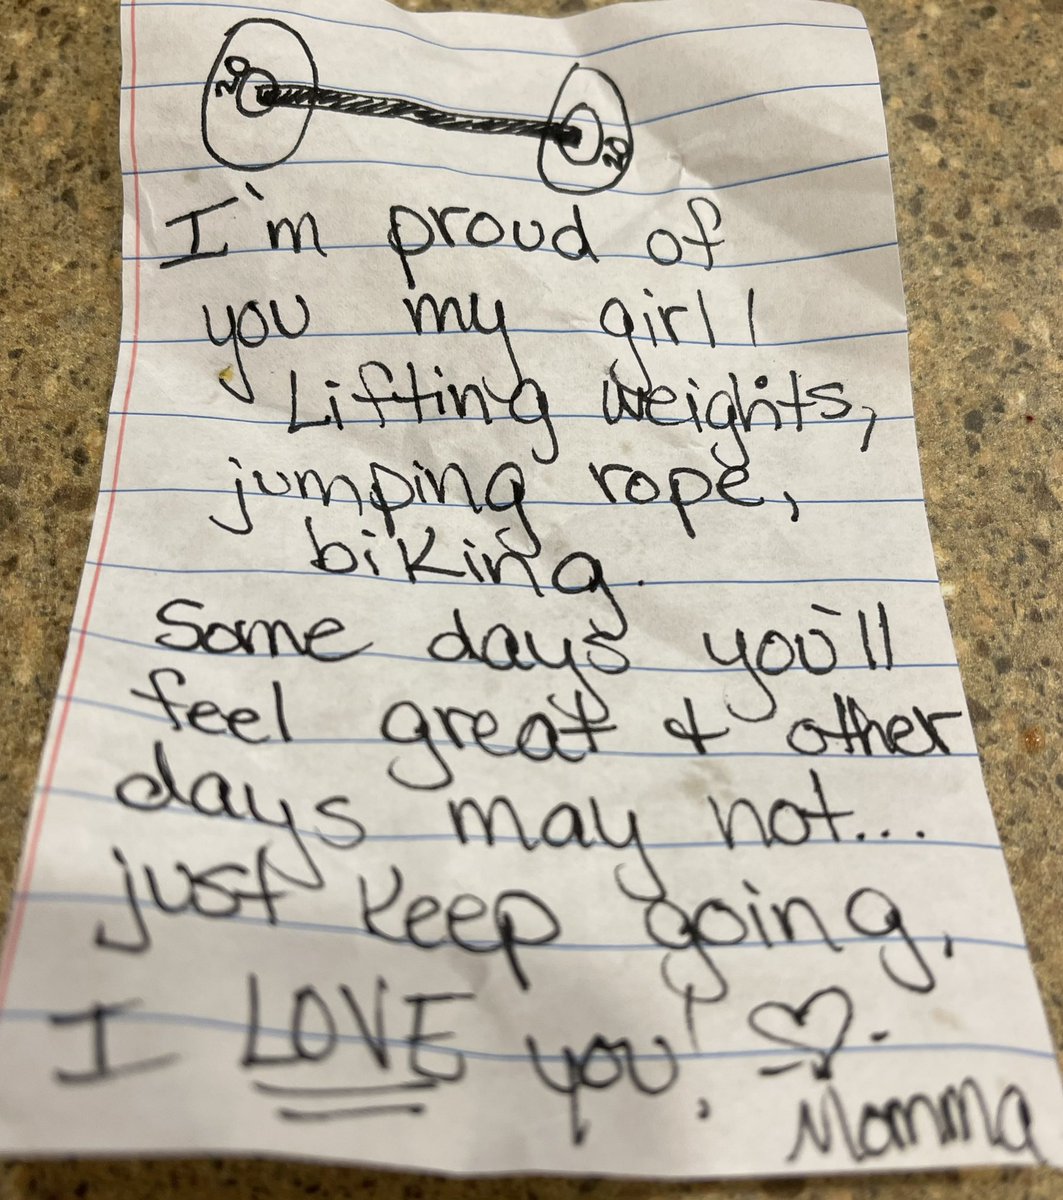 20
20
I'm proud of
you my girl!
Lifting weights,
jumping rope,
biking.
Some days you'll
feel great & other
days may not...
just keep going.
I LOVE you! ♡-
Momma